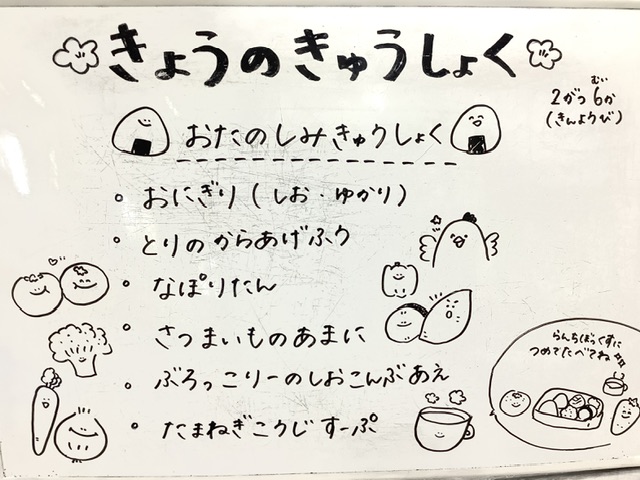 きょうのきゅうしょく
2がつ6か
むい
(きんようび)
おたのしみきゅうしょく
・おにぎり(しお・ゆかり)
・とりのからあげふう
・なぽりたん
・さつまいものあまに
・ぶろっこりーのしおこんぶあえ
・たまねぎこうじすーぷ
らんちぼっくすに
つめてたべてね